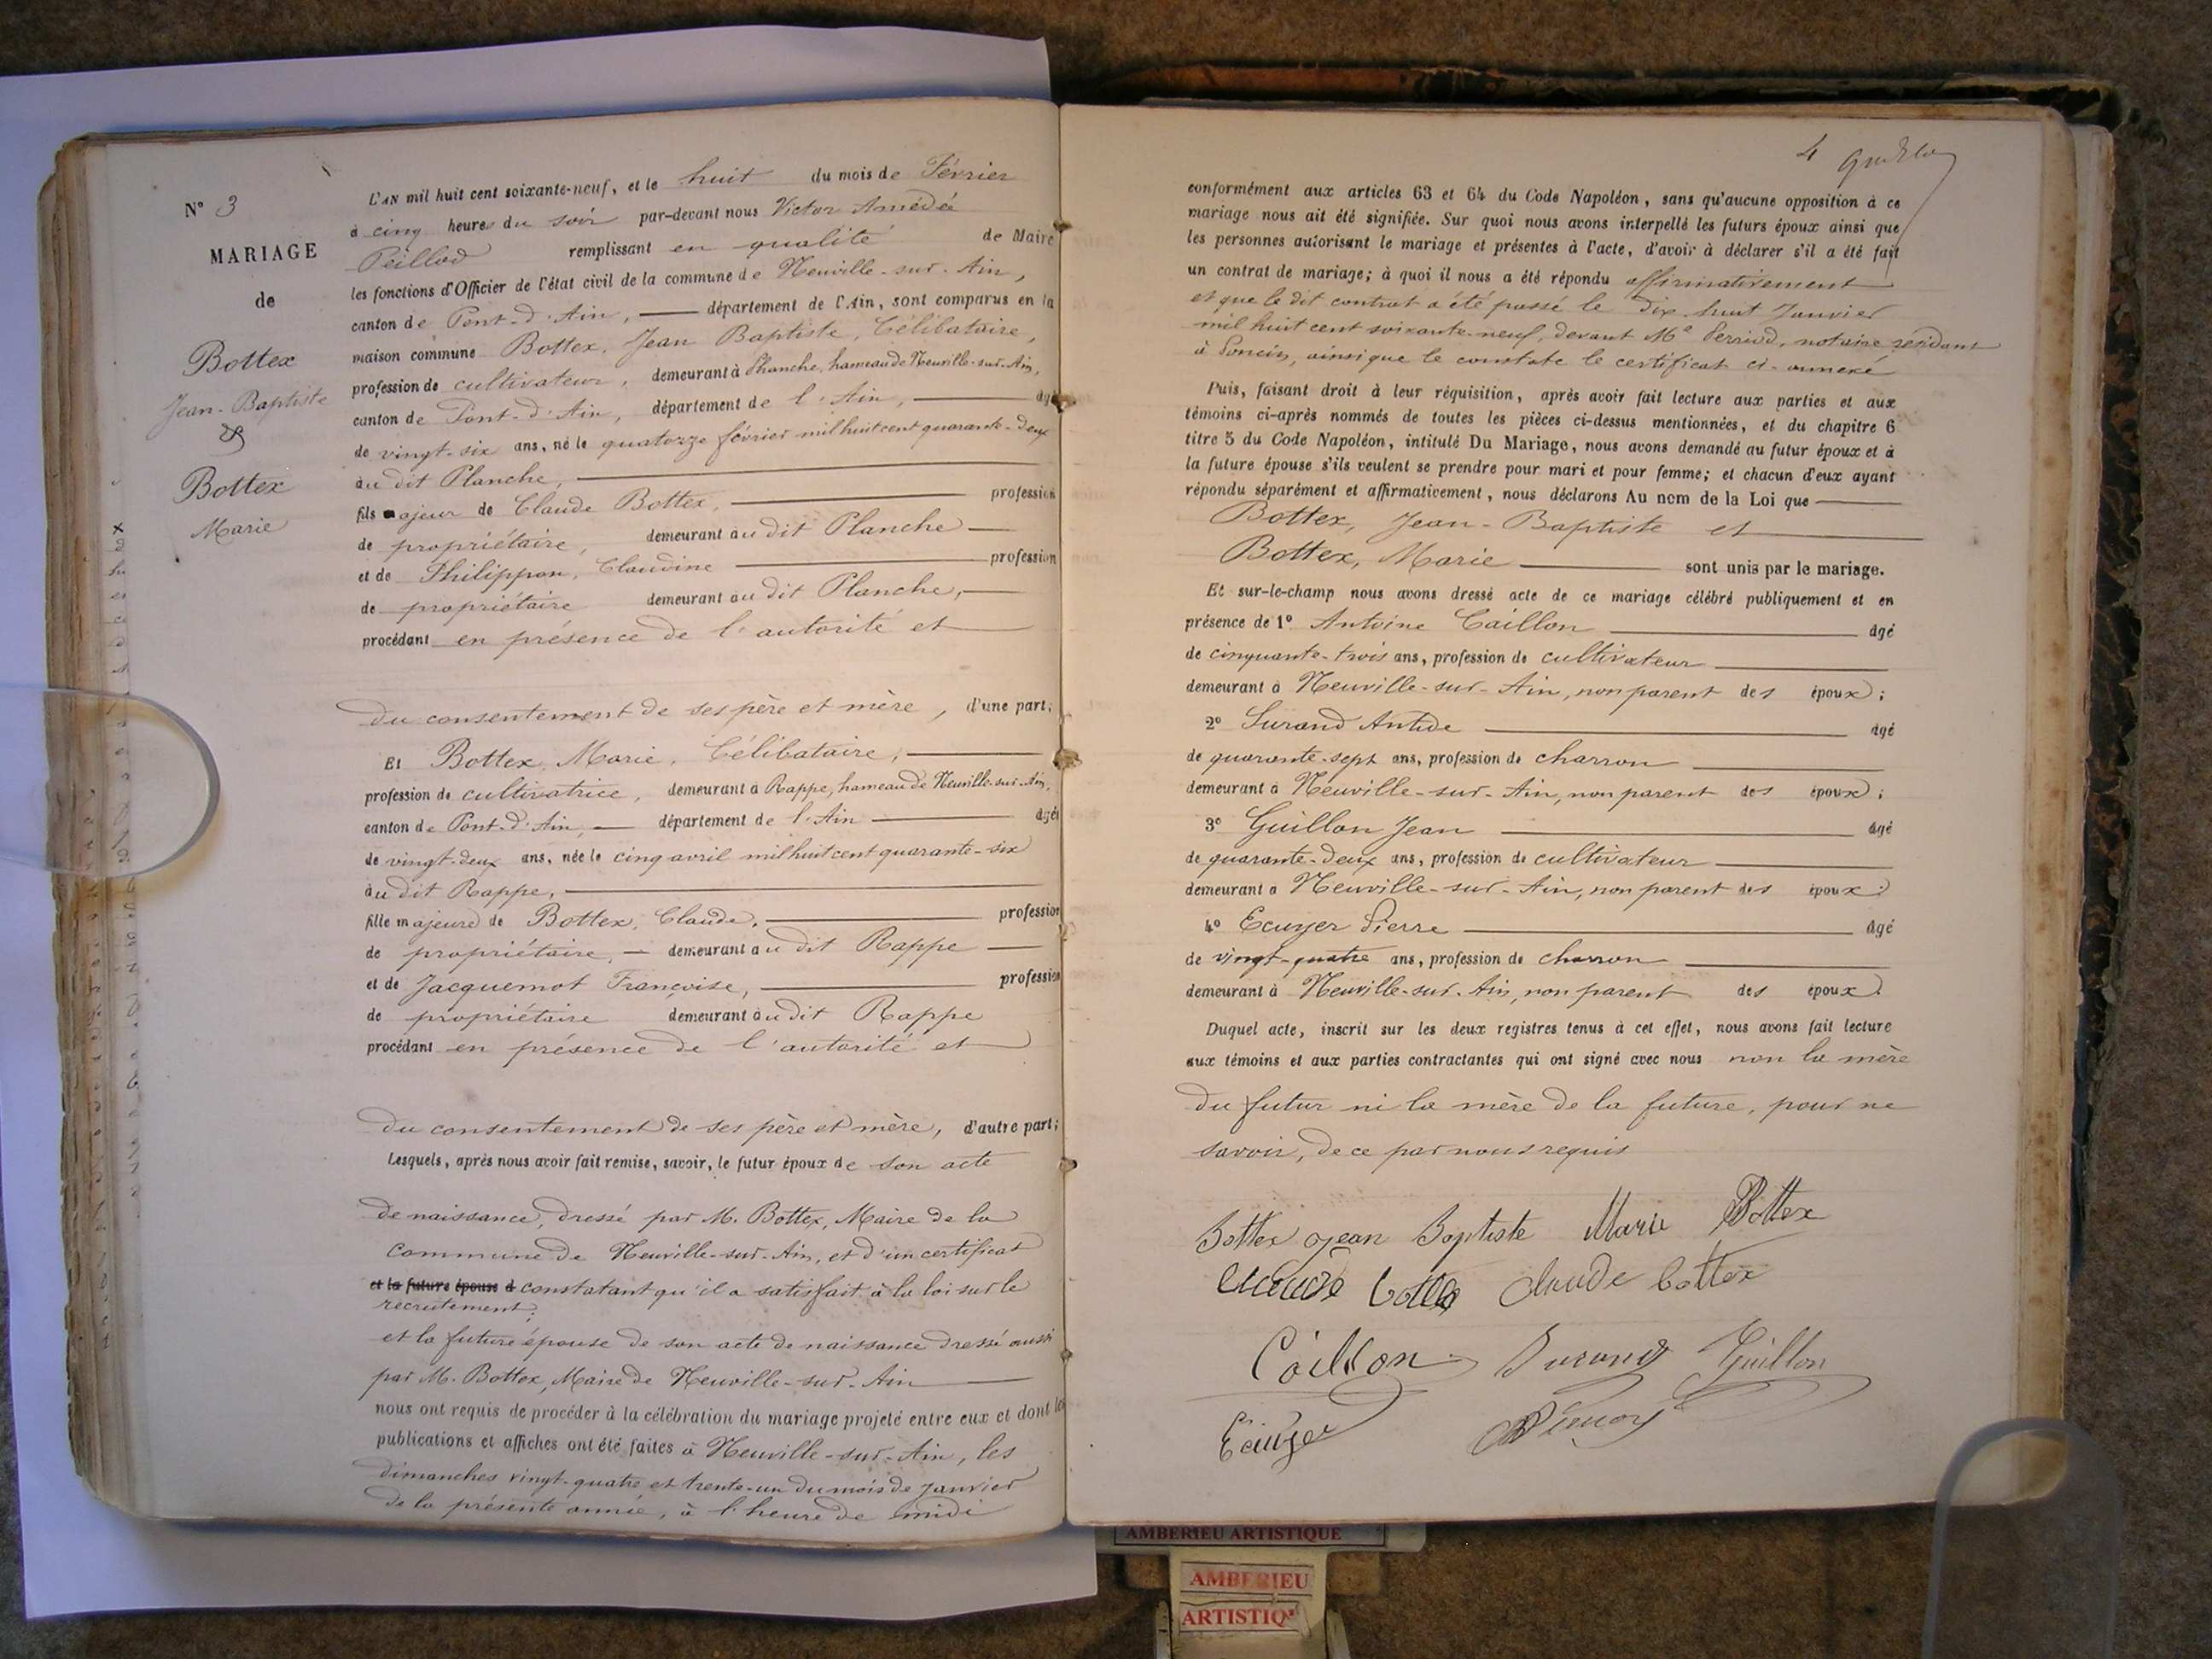 N° 3
MARIAGE
de
Bottex
Jean-Baptiste
&
Bottex
Marie
L'AN mil huit cent soixante-neuf, et le huit du mois de Février
à cinq heures du soir par-devant nous Victor Amédée
Peillod remplissant en qualité de Maire
les fonctions d'Officier de l'état civil de la commune de Neuville-sur-Ain,
canton de Pont-d'Ain, département de l'Ain, sont comparus en la
maison commune Bottex, Jean Baptiste, Célibataire,
profession de cultivateur, demeurant à Planche, hameau de Neuville-sur-Ain,
canton de Pont-d'Ain, département de l'Ain, âgé
de vingt-six ans, né le quatorze février mil huit cent quarante-deux
au dit Planche,
fils majeur de Claude Bottex, profession
de propriétaire, demeurant au dit Planche
et de Philippon, Claudine profession
de propriétaire demeurant au dit Planche,
procédant en présence de l'autorité et
du consentement de ses père et mère, d'une part;
Et Bottex, Marie, Célibataire,
profession de cultivatrice, demeurant à Rappe, hameau de Neuville-sur-Ain,
canton de Pont-d'Ain, département de l'Ain âgée
de vingt-deux ans, née le cinq avril mil huit cent quarante-six
au dit Rappe,
fille majeure de Bottex, Claude, profession
de propriétaire, demeurant au dit Rappe
et de Jacquemot Françoise, profession
de propriétaire demeurant au dit Rappe
procédant en présence de l'autorité et
du consentement de ses père et mère, d'autre part;
Lesquels, après nous avoir fait remise, savoir, le futur époux de son acte
de naissance, dressé par M. Bottex, Maire de la
commune de Neuville-sur-Ain, et d'un certificat
et la future épouse d constatant qu'il a satisfait à la loi sur le
recrutement;
et la future épouse de son acte de naissance dressé aussi
par M. Bottex, Maire de Neuville-sur-Ain
nous ont requis de procéder à la célébration du mariage projeté entre eux et dont les
publications et affiches ont été faites à Neuville-sur-Ain, les
dimanches vingt-quatre et trente-un du mois de janvier
de la présente année, à l'heure de midi
4
conformément aux articles 63 et 64 du Code Napoléon, sans qu'aucune opposition à ce
mariage nous ait été signifiée. Sur quoi nous avons interpellé les futurs époux ainsi que
les personnes autorisant le mariage et présentes à l'acte, d'avoir à déclarer s'il a été fait
un contrat de mariage; à quoi il nous a été répondu affirmativement
et que le dit contrat a été passé le dix-huit Janvier
mil huit cent soixante-neuf, devant Me Perriod, notaire résidant
à Poncin, ainsi que le constate le certificat ci-annexé
Puis, faisant droit à leur réquisition, après avoir fait lecture aux parties et aux
témoins ci-après nommés de toutes les pièces ci-dessus mentionnées, et du chapitre 6
titre 5 du Code Napoléon, intitulé Du Mariage, nous avons demandé au futur époux et à
la future épouse s'ils veulent se prendre pour mari et pour femme; et chacun d'eux ayant
répondu séparément et affirmativement, nous déclarons Au nom de la Loi que
Bottex, Jean-Baptiste et
Bottex, Marie sont unis par le mariage.
Et sur-le-champ nous avons dressé acte de ce mariage célébré publiquement et en
présence de 1° Antoine Caillon âgé
de cinquante-trois ans, profession de cultivateur
demeurant à Neuville-sur-Ain, non parent des époux;
2° Durand Antide âgé
de quarante-sept ans, profession de charron
demeurant à Neuville-sur-Ain, non parent des époux;
3° Guillon Jean âgé
de quarante-deux ans, profession de cultivateur
demeurant à Neuville-sur-Ain, non parent des époux;
4° Ecuyer Pierre âgé
de vingt-quatre ans, profession de charron
demeurant à Neuville-sur-Ain, non parent des époux.
Duquel acte, inscrit sur les deux registres tenus à cet effet, nous avons fait lecture
aux témoins et aux parties contractantes qui ont signé avec nous non la mère
du futur ni la mère de la future, pour ne
savoir, de ce par nous requis
Bottex Jean Baptiste Marie Bottex
Claude Bottex Claude Bottex
Caillon Durand Guillon
Ecuyer
AMBERIEU ARTISTIQUE
AMBERIEU
ARTISTIQ